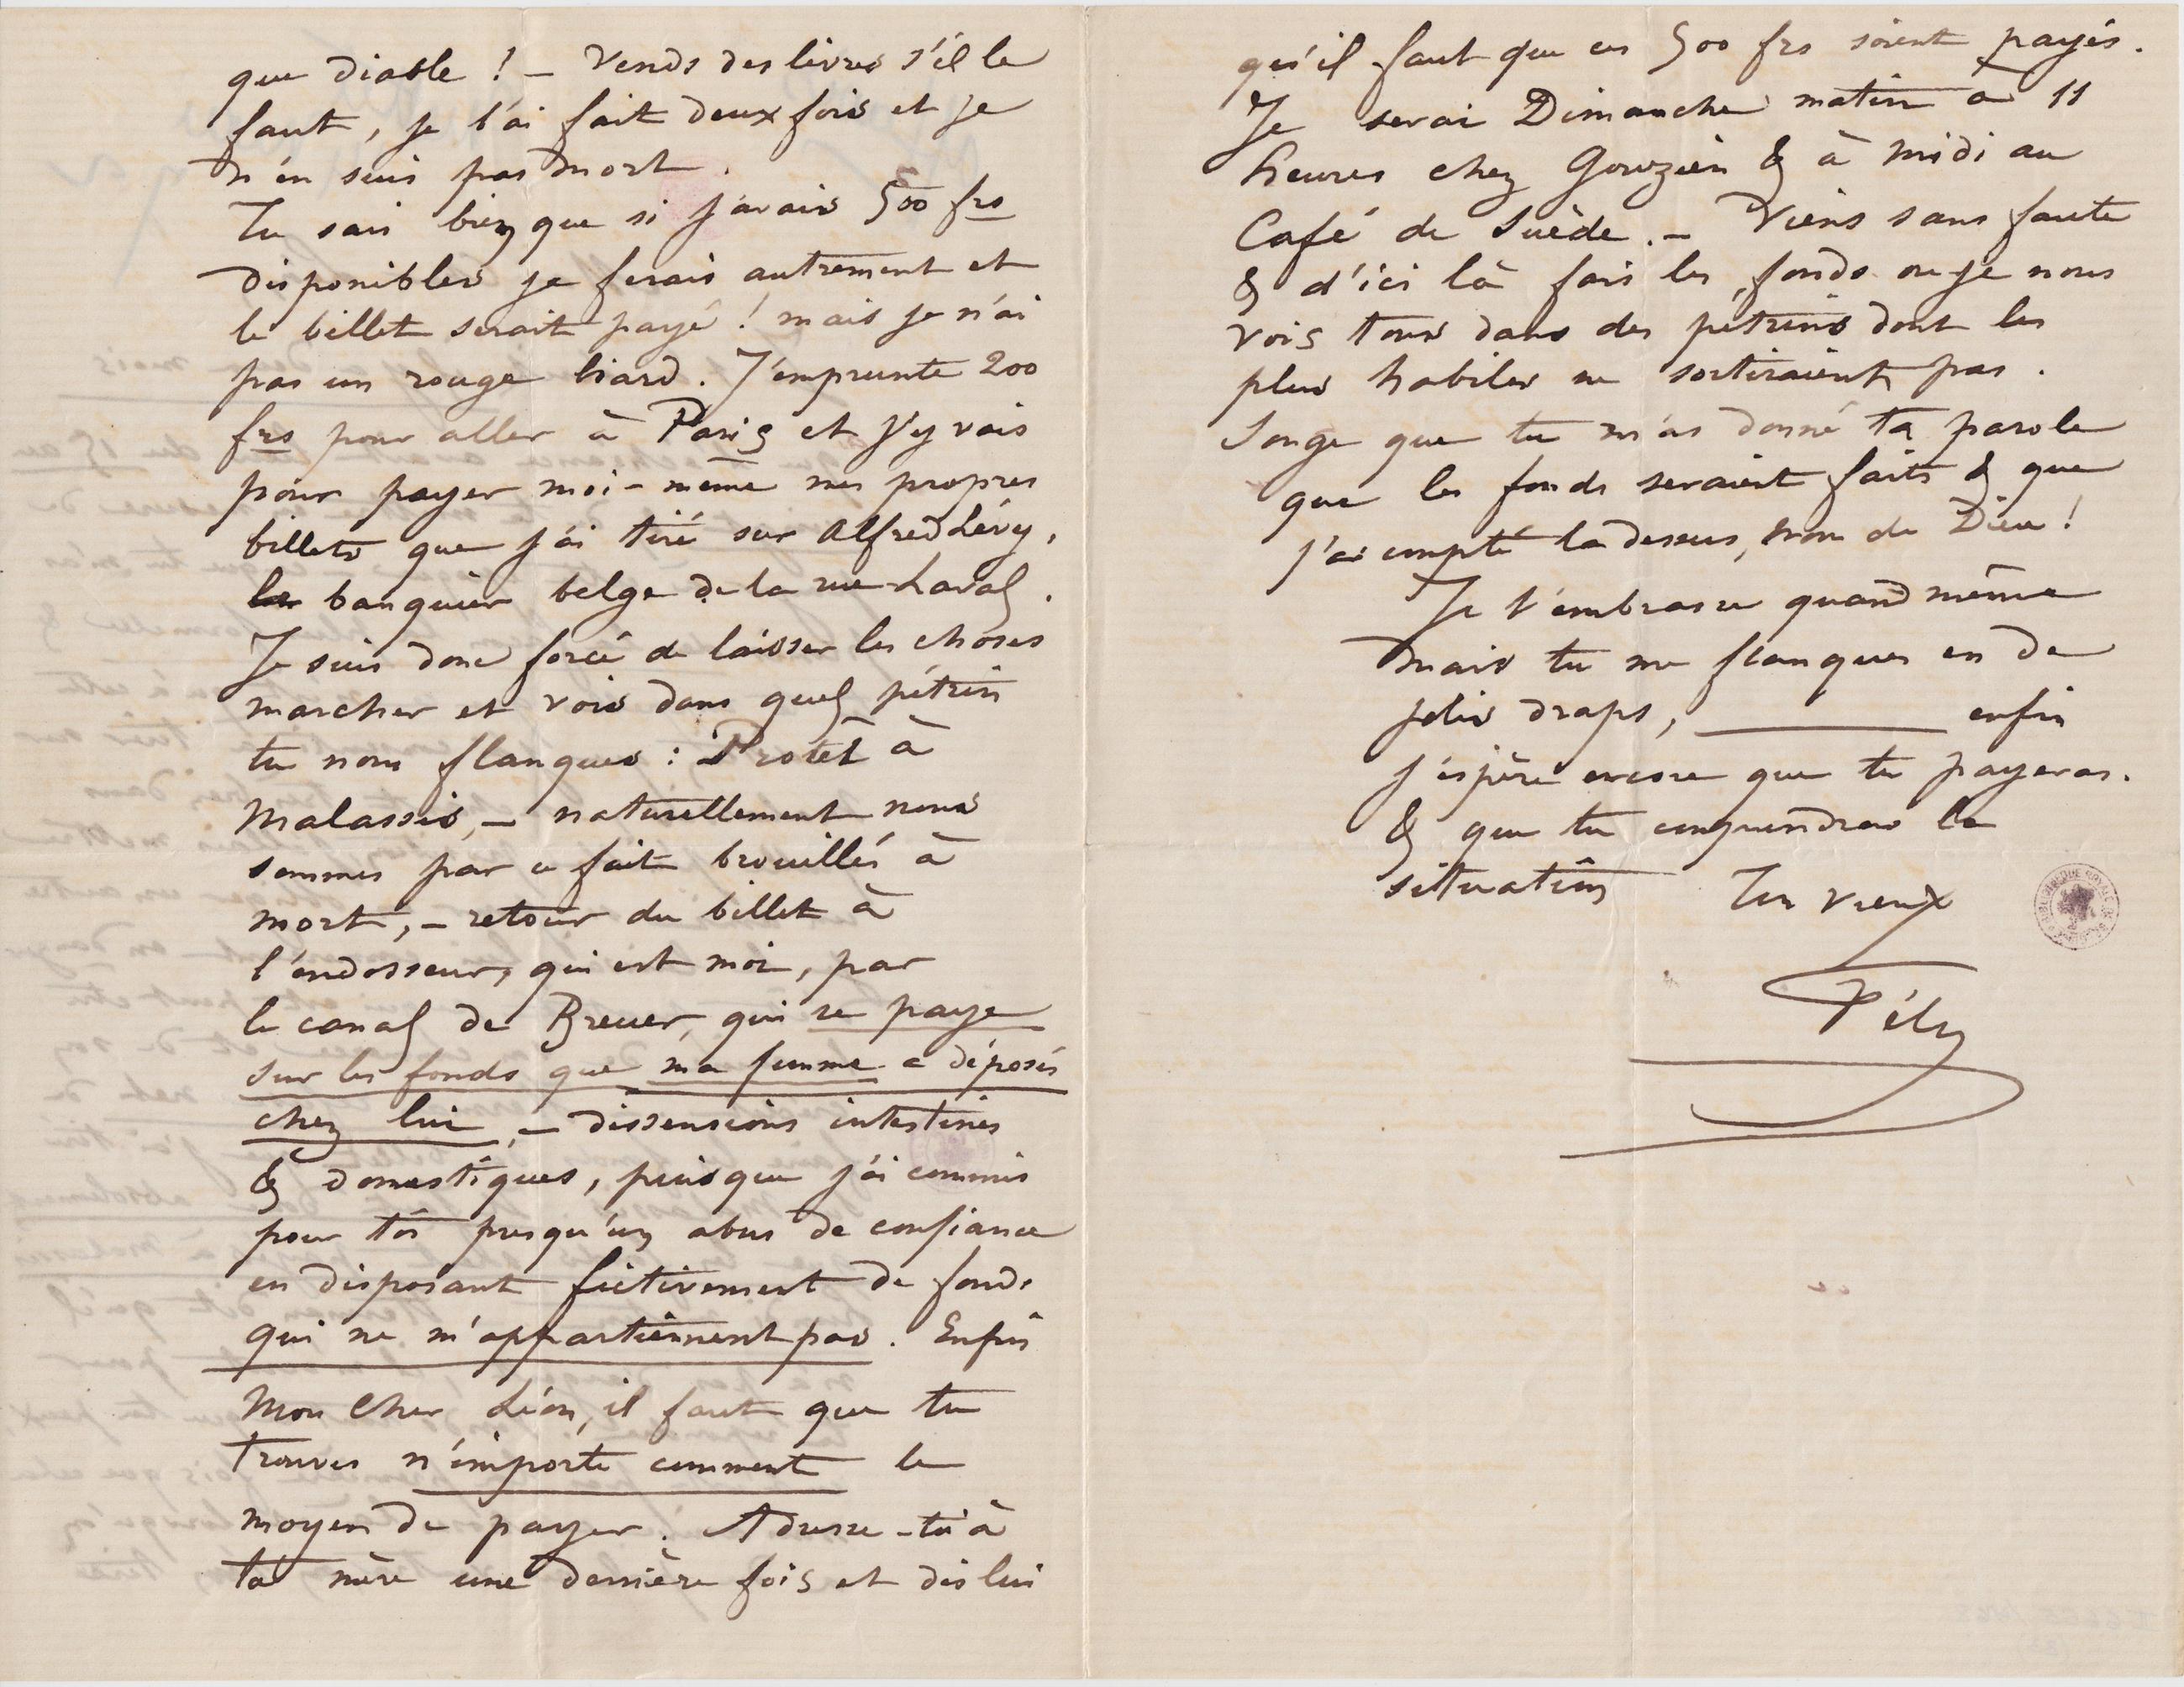 que diable ! – Vends des livres s'il le
faut, je l'ai fait deux fois et je
n'en suis pas mort.
Tu sais bien que si j'avais 500 frs
disponibles je ferais autrement et
le billet serait payé ! mais je n'ai
pas un rouge liard. J'emprunte 200
frs pour aller à Paris et j'y vais
pour payer moi-même mes propres
billets que j'ai tiré sur Alfred Lévy,
le banquier belge de la rue Laval.
Je suis donc forcé de laisser les choses
marcher et vois dans quel pétrin
tu nous flanques : Protêt à
Malassis, – naturellement nous
sommes par ce fait brouillés à
mort, – retour du billet à
l'endosseur, qui est moi, par
le canal de Breuer, qui se paye
sur les fonds que ma femme a déposés
chez lui, – dissensions intestines
& domestiques, puisque j'ai commis
pour toi presqu'un abus de confiance
en disposant fictivement de fonds
qui ne m'appartiennent pas. Enfin
Mon Cher Léon, il faut que tu
trouves n'importe comment le
moyen de payer. Adresse-toi à
ta mère une dernière fois et dis lui
qu'il faut que ces 500 frs soient payés.
Je serai Dimanche matin à 11
heures chez Gouzien & à midi au
Café de Suède. – Viens sans faute
& d'ici là fais les fonds ou je nous
vois tous dans des pétrins dont les
plus habiles ne sortiraient pas.
Songe que tu m'as donné ta parole
que les fonds seraient faits & que
j'ai compté la dessus, nom de Dieu !
Je t'embrasse quand même
mais tu me flanques en de
jolis draps, ——— enfin
j'espère encore que tu payeras.
& que tu comprendras la
situation Ton vieux
Fély